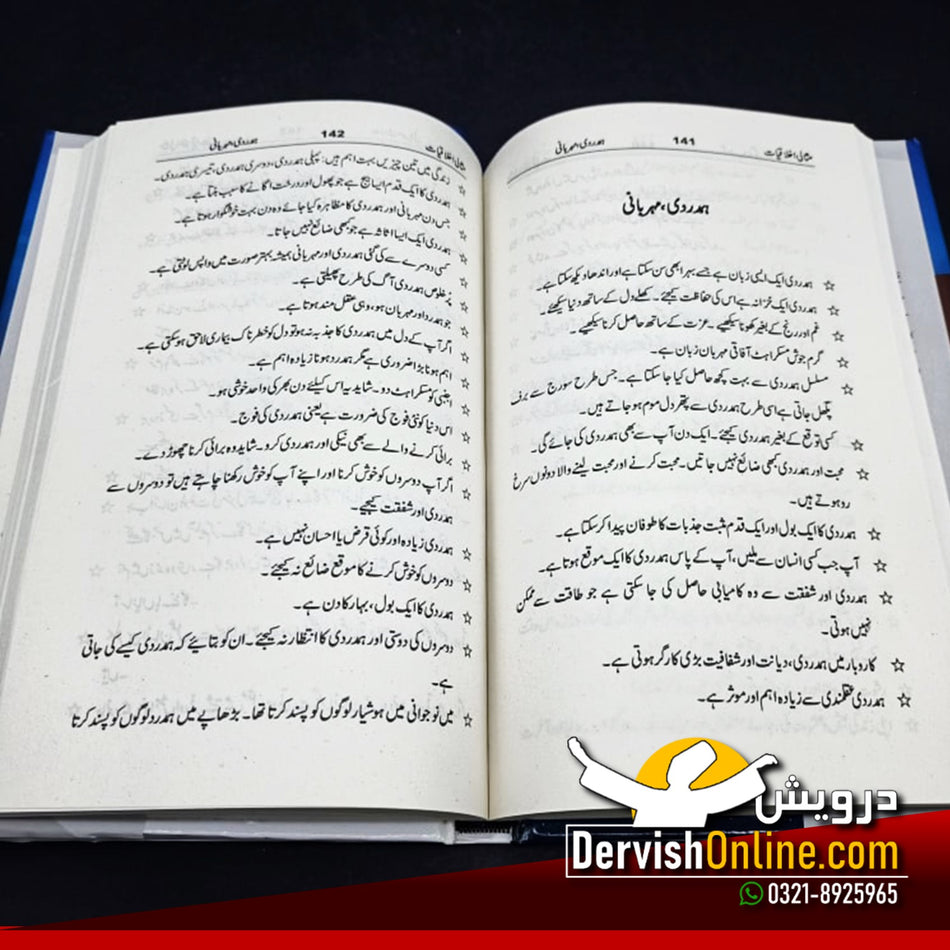 مثالی اخلاقیات 141 ہمدردی، مہربانی
ہمدردی، مہربانی
☆ ہمدردی ایک ایسی زبان ہے جسے بہرا بھی سن سکتا ہے اور اندھا دیکھ سکتا ہے۔
☆ ہمدردی ایک خزانہ ہے اس کی حفاظت کیجئے۔ کھلے دل کے ساتھ دنیا سیکھئے۔
☆ غم اور رنج کے بغیر کھونا سیکھیے۔ عزت کے ساتھ حاصل کرنا سیکھیے۔
☆ گرم جوش مسکراہٹ آفاقی مہربان زبان ہے۔
☆ مسلسل ہمدردی سے بہت کچھ حاصل کیا جا سکتا ہے۔ جس طرح سورج سے برف
پگھل جاتی ہے اسی طرح ہمدردی سے پتھر دل موم ہو جاتے ہیں۔
☆ کسی توقع کے بغیر ہمدردی کیجئے۔ ایک دن آپ سے بھی ہمدردی کی جائے گی۔
☆ محبت اور ہمدردی کبھی ضائع نہیں جاتیں۔ محبت کرنے اور محبت لینے والا دونوں سرخ
رو ہوتے ہیں۔
☆ ہمدردی کا ایک بول اور ایک قدم مثبت جذبات کا طوفان پیدا کر سکتا ہے۔
☆ آپ جب کسی انسان سے ملیں، آپ کے پاس ہمدردی کا ایک موقع ہوتا ہے۔
☆ ہمدردی اور شفقت سے وہ کامیابی حاصل کی جا سکتی ہے جو طاقت سے ممکن
نہیں ہوتی۔
☆ کاروبار میں ہمدردی، دیانت اور شفافیت بڑی کارگر ہوتی ہے۔
☆ ہمدردی عقلمندی سے زیادہ اہم اور موثر ہے۔
مثالی اخلاقیات 142 ہمدردی، مہربانی
☆ زندگی میں تین چیزیں بہت اہم ہیں: پہلی ہمدردی، دوسری ہمدردی، تیسری ہمدردی۔
☆ ہمدردی کا ایک قدم ایسا بیج ہے جو پھول اور درخت اگانے کا سبب بنتا ہے۔
☆ جس دن مہربانی اور ہمدردی کا مظاہرہ کیا جائے وہ دن بہت خوشگوار ہوتا ہے۔
☆ ہمدردی ایک ایسا اثاثہ ہے جو کبھی ضائع نہیں جاتا۔
☆ کسی دوسرے سے کی گئی ہمدردی اور مہربانی ہمیشہ بہتر صورت میں واپس لوٹتی ہے۔
☆ پرخلوص ہمدردی آگ کی طرح پھیلتی ہے۔
☆ جو ہمدرد اور مہربان ہو، وہی عقل مند ہوتا ہے۔
☆ اگر آپ کے دل میں ہمدردی کا جذبہ نہ ہو تو دل کو خطرناک بیماری لاحق ہو سکتی ہے۔
☆ اہم ہونا بڑا ضروری ہے مگر ہمدرد ہونا زیادہ اہم ہے۔
☆ اجنبی کو مسکراہٹ دو۔ شاید یہ اس کیلئے دن بھر کی واحد خوشی ہو۔
☆ اس دنیا کو نئی فوج کی ضرورت ہے یعنی ہمدردی کی فوج۔
☆ برائی کرنے والے سے بھی نیکی اور ہمدردی کرو۔ شاید وہ برائی کرنا چھوڑ دے۔
☆ اگر آپ دوسروں کو خوش کرنا اور اپنے آپ کو خوش رکھنا چاہتے ہیں تو دوسروں سے
ہمدردی اور شفقت کیجیے۔
☆ ہمدردی زیادہ اور کوئی قرض یا احسان نہیں ہے۔
☆ دوسروں کو خوش کرنے کا موقع ضائع نہ کیجئے۔
☆ ہمدردی کا ایک بول، بہار کا دن ہے۔
☆ دوسروں کی دوستی اور ہمدردی کا انتظار نہ کیجئے۔ ان کو بتائیے کہ ہمدردی کیسے کی جاتی
ہے۔
☆ میں نوجوانی میں ہوشیار لوگوں کو پسند کرتا تھا۔ بڑھاپے میں ہمدرد لوگوں کو پسند کرتا
درویش
DervishOnline.com
0321-8925965